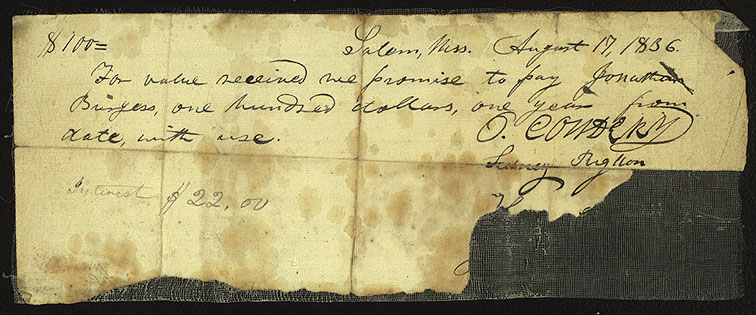 $100= Salem, Mss. August 17, 1836.
For value received we promise to pay Jonathan
Burgess, one hundred dollars, one year from
date, with use. O. COWDERY
Sidney Rigdon
Interest $22.00